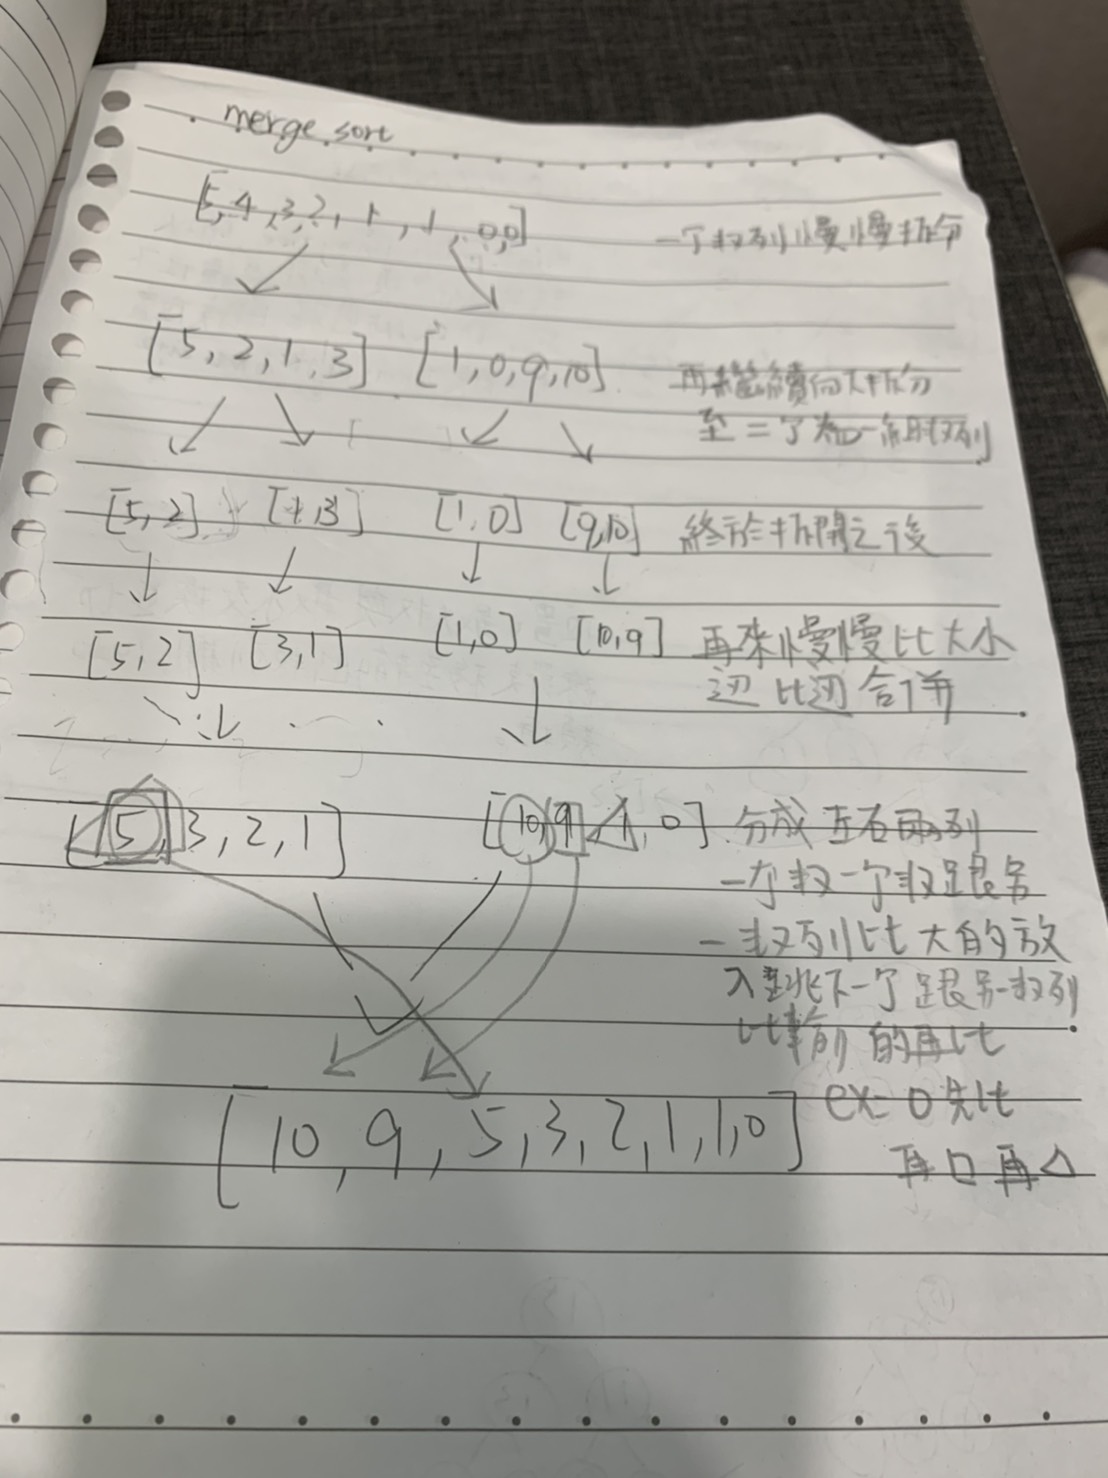 merge sort
[5,4,3,2,1,1,0,0]
一个权列慢慢拆分
[5,2,1,3] [1,0,9,10]
再繼續向下拆分
至二个為一組权列
[5,2] [1,3] [1,0] [9,10] 終於拆開之後
[5,2] [3,1] [1,0] [10,9] 再來慢慢比大小
边比边合併
[5,3,2,1] [10,9,1,0] 分成左右兩列
一个权一个权跟另
一权列比大的放
入並挑下一个跟另一权列
比輸的再比
ex= O先比
[10,9,5,3,2,1,1,0]
再□再△